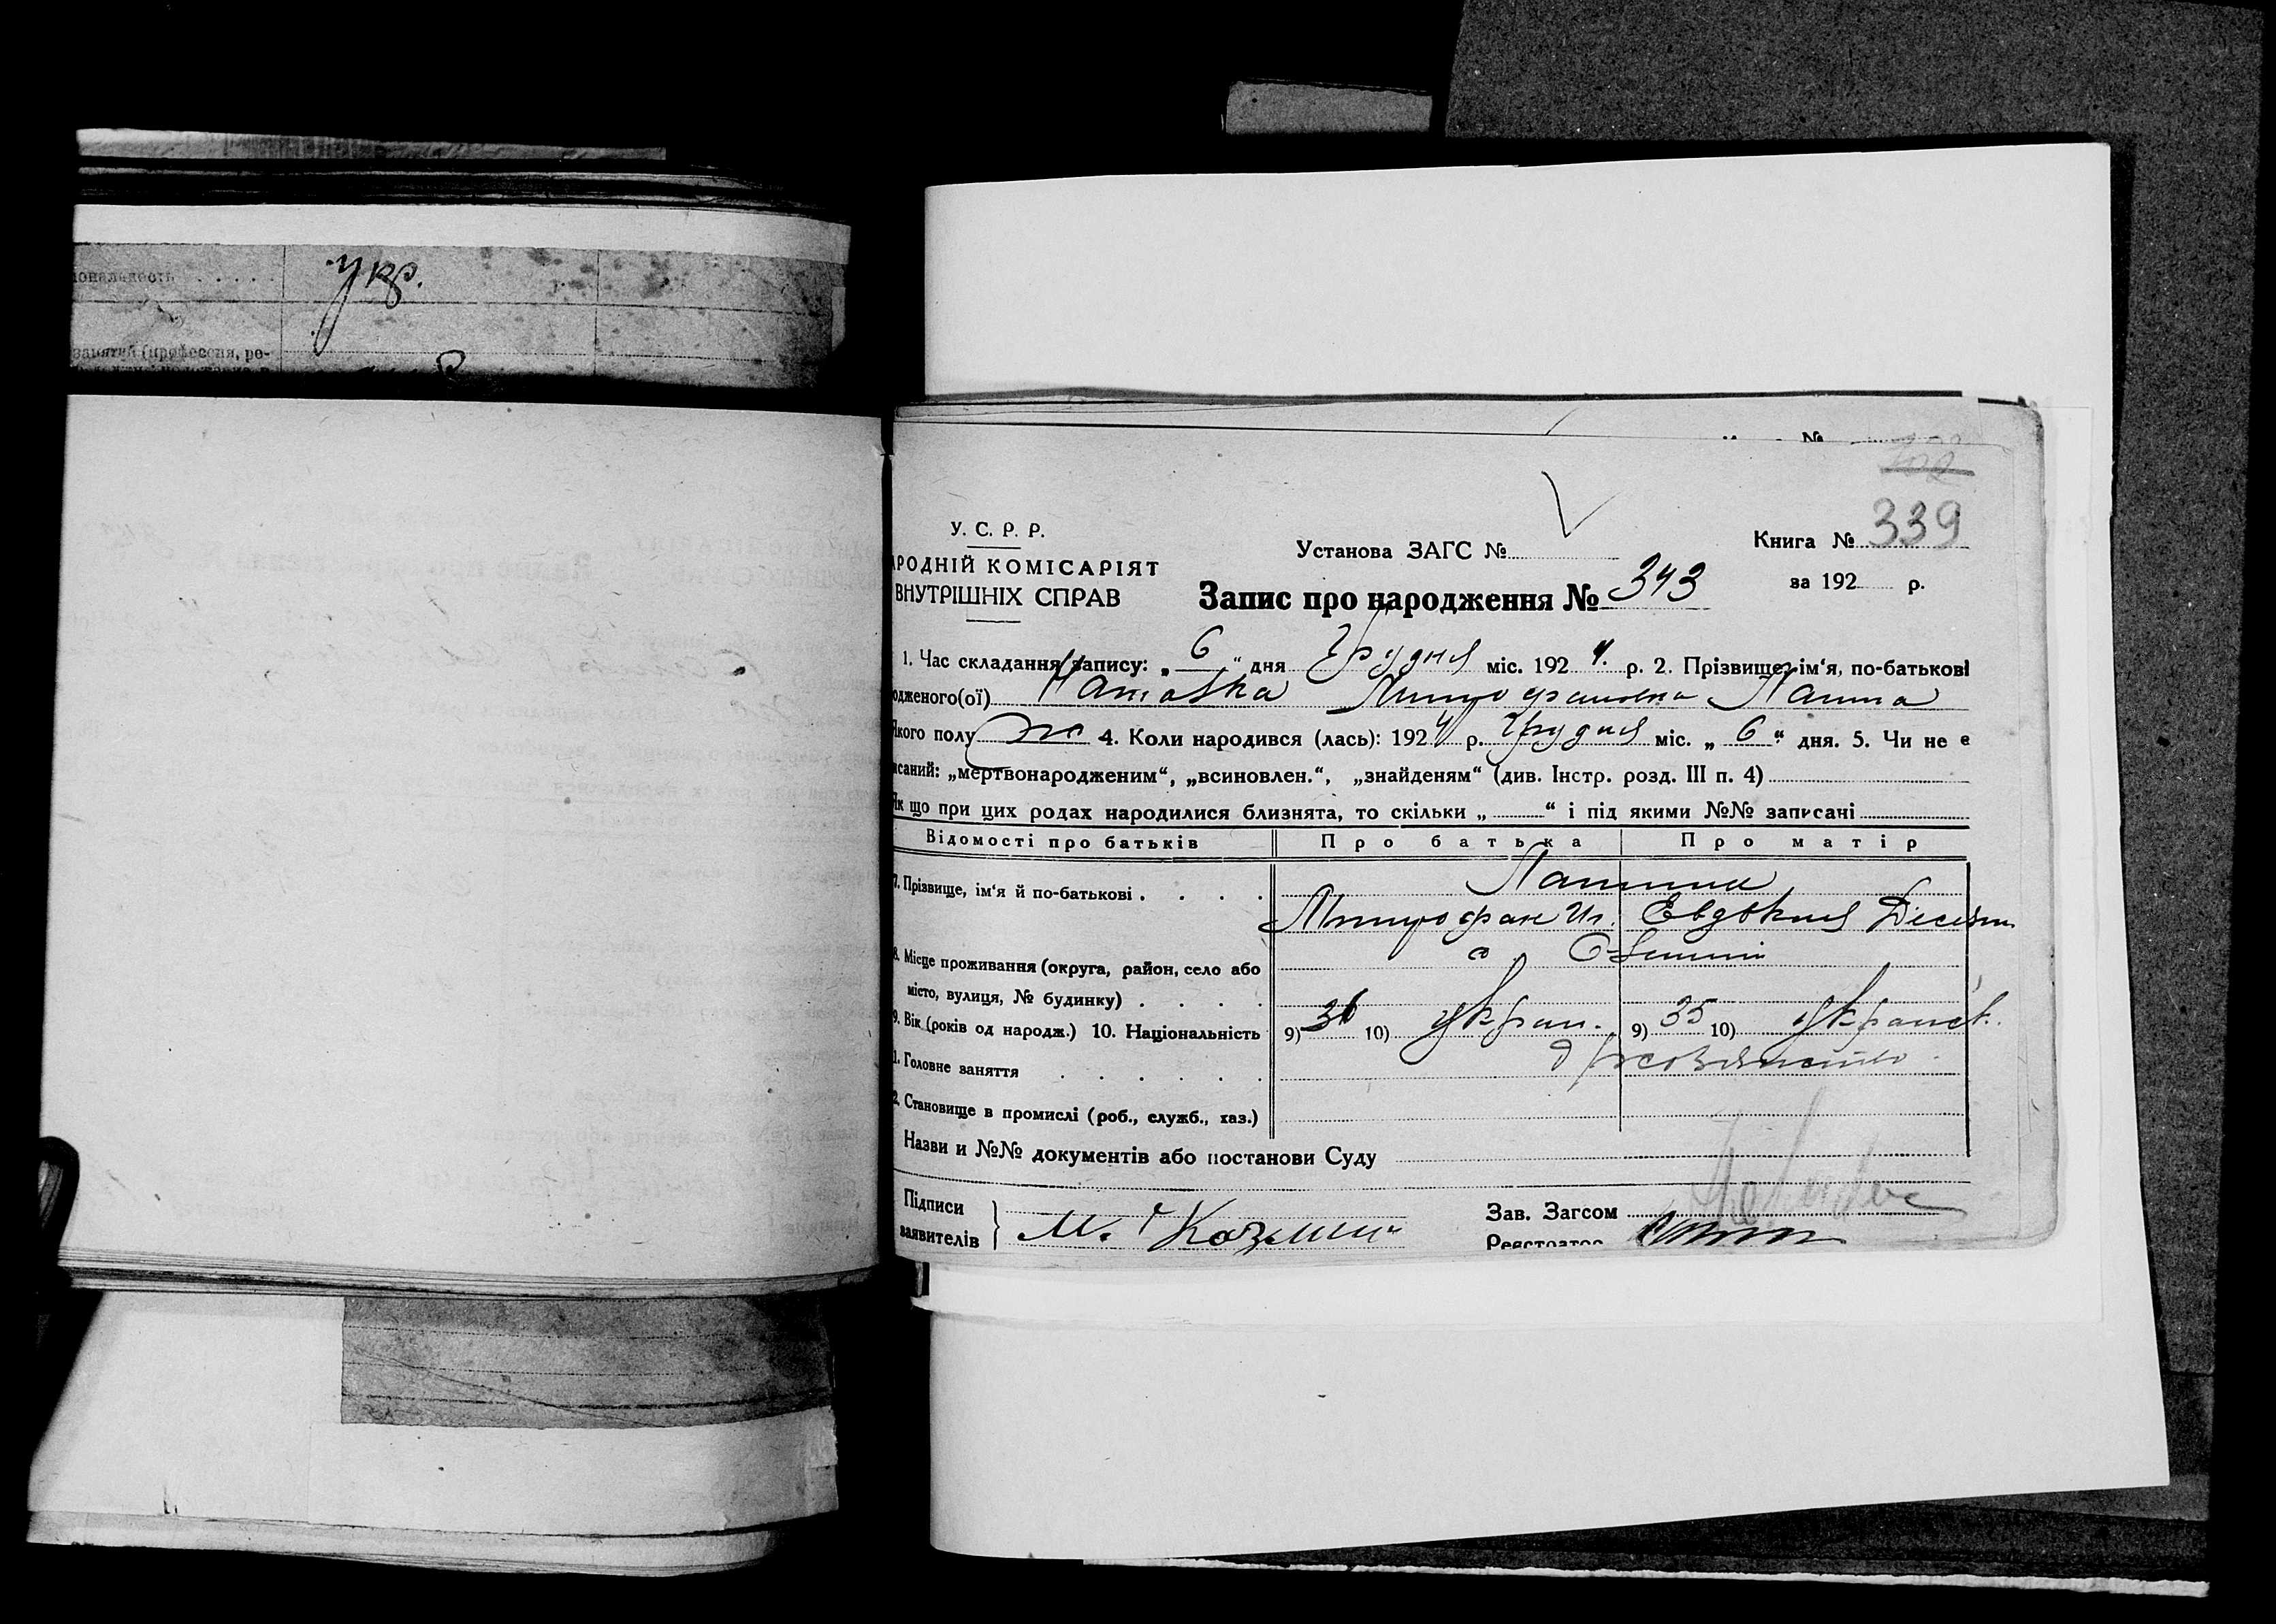 укр.
занятий (професія, ре-
№
У. С. Р. Р.
АРОДНІЙ КОМІСАРІЯТ
ВНУТРІШНІХ СПРАВ
Установа ЗАГС №
Книга № 339
за 192 р.
Запис про народження № 343
1. Час складання запису: „ 6 “ дня Грудня міс. 192 4. р. 2. Прізвище, ім'я, по-батькові
одженого(ої) Наталка Митрофановна
якого полу жо 4. Коли народився (лась): 192 4 р. Грудня міс. „ 6 “ дня. 5. Чи не є
исаний: „мертвонародженим“, „всиновлен.“, „знайденям“ (див. Інстр. розд. III п. 4)
Як що при цих родах народилися близнята, то скільки „ “ і під якими №№ записані
Відомості про батьків Про батька Про матір
7. Прізвище, ім'я й по-батькові
Митрофан Ив. Евдокия
8. Місце проживання (округа, район, село або
місто, вулиця, № будинку)
9. Вік (років од народж.) 10. Національність 9) 36 10) Украи. 9) 35 10) Украинск.
1. Головне заняття
2. Становище в промислі (роб., служб., хаз.)
Назви и №№ документів або постанови Суду
Підписи
заявителів
М.
Зав. Загсом
Реєстратор